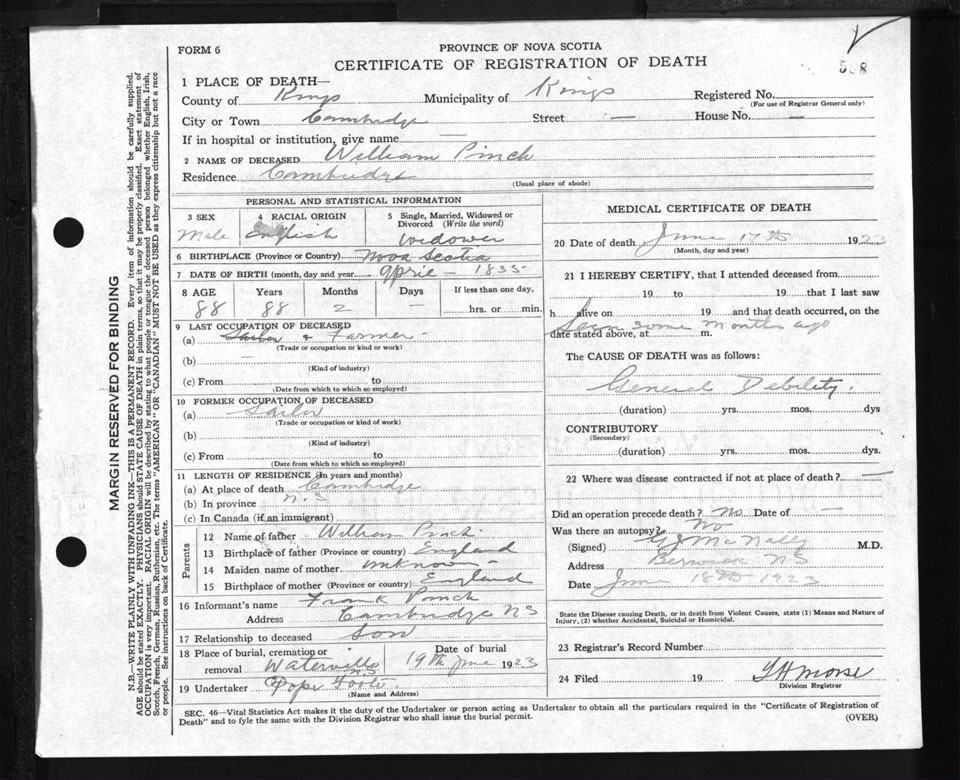 FORM 6
PROVINCE OF NOVA SCOTIA
CERTIFICATE OF REGISTRATION OF DEATH
MARGIN RESERVED FOR BINDING
N.B.—WRITE PLAINLY WITH UNFADING INK—THIS IS A PERMANENT RECORD. Every item of information should be carefully supplied.
AGE should be stated EXACTLY. PHYSICIANS should STATE CAUSE OF DEATH in plain terms, so that it may be properly classified. Exact statement of
OCCUPATION is very important. RACIAL ORIGIN will be described by stating to what people or tongue the deceased person belonged whether English, Irish,
Scotch, French, German, Russian, Ruthenian, etc. The terms "AMERICAN" OR "CANADIAN" MUST NOT BE USED as they express citizenship but not a race
or people. See instructions on back of Certificate.
1 PLACE OF DEATH—
County of Kings Municipality of Kings Registered No.
(For use of Registrar General only)
City or Town Cambridge Street — House No. —
If in hospital or institution, give name —
2 NAME OF DECEASED William Pinch
Residence Cambridge
(Usual place of abode)
PERSONAL AND STATISTICAL INFORMATION
3 SEX Male
4 RACIAL ORIGIN English
5 Single, Married, Widowed or Divorced (Write the word) widower
6 BIRTHPLACE (Province or Country) Nova Scotia
7 DATE OF BIRTH (month, day and year) April — 1835
8 AGE Years Months Days If less than one day,
88 88 2 — hrs. or min.
9 LAST OCCUPATION OF DECEASED
(a) Sailor & Farmer
(Trade or occupation or kind or work)
(b) —
(Kind of industry)
(c) From to
(Date from which to which so employed)
10 FORMER OCCUPATION OF DECEASED
(a) Sailor
(Trade or occupation or kind of work)
(b)
(Kind of industry)
(c) From to
(Date from which to which so employed)
11 LENGTH OF RESIDENCE (In years and months)
(a) At place of death Cambridge
(b) In province N.S
(c) In Canada (if an immigrant)
Parents
12 Name of father William Pinch
13 Birthplace of father (Province or country) England
14 Maiden name of mother unknown
15 Birthplace of mother (Province or country) England
16 Informant's name Frank Pinch
Address Cambridge NS
17 Relationship to deceased Son
18 Place of burial, cremation or removal Waterville N.S
Date of burial 19th June 1923
19 Undertaker Pope Foote
(Name and Address)
MEDICAL CERTIFICATE OF DEATH
20 Date of death June 17th 1923
(Month, day and year)
21 I HEREBY CERTIFY, that I attended deceased from
19 to 19 that I last saw
h alive on 19 and that death occurred, on the
Seen some months ago
date stated above, at m.
The CAUSE OF DEATH was as follows:
General Debility.
(duration) yrs. mos. dys
CONTRIBUTORY
(Secondary)
(duration) yrs. mos. dys.
22 Where was disease contracted if not at place of death? —
Did an operation precede death? No Date of —
Was there an autopsy? No
(Signed) McNally M.D.
Address Berwick NS
Date June 18th 1923
State the Disease causing Death, or in death from Violent Causes, state (1) Means and Nature of
Injury, (2) whether Accidental, Suicidal or Homicidal.
23 Registrar's Record Number
24 Filed 19 Morse
Division Registrar
SEC. 46—Vital Statistics Act makes it the duty of the Undertaker or person acting as Undertaker to obtain all the particulars required in the "Certificate of Registration of
Death" and to fyle the same with the Division Registrar who shall issue the burial permit.
(OVER)